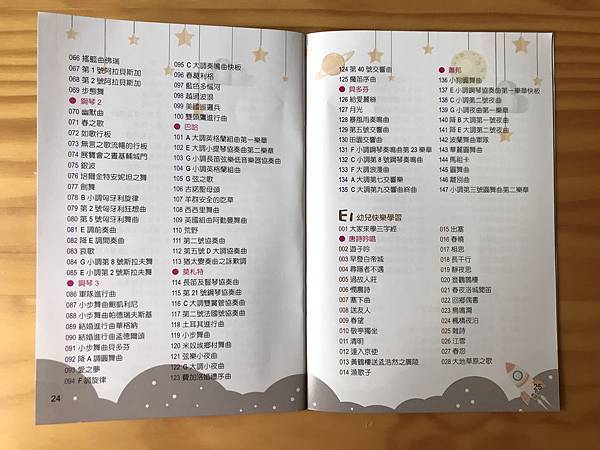 066 搖籃曲佛瑞
067 第 1 號阿拉貝斯加
068 第 2 號阿拉貝斯加
069 步態舞
● 鋼琴 2
070 幽默曲
071 春之歌
072 如歌行板
073 無言之歌流暢的行板
074 展覽會之畫基輔城門
075 銀波
076 培爾金特安妮坦之舞
077 劍舞
078 B 小調匈牙利旋律
079 第 2 號匈牙利狂想曲
080 第 5 號匈牙利舞曲
081 E 調前奏曲
082 降 E 調間奏曲
083 哀歌
084 G 小調第 8 號斯拉夫舞
085 E 小調第 2 號斯拉夫舞
● 鋼琴 3
086 軍隊進行曲
087 小步舞曲鮑凱利尼
088 小步舞曲帕德瑞夫斯基
089 結婚進行曲華格納
090 結婚進行曲孟德爾頌
091 小步舞曲貝多芬
092 降 A 調圓舞曲
093 愛之夢
094 F 調旋律
24
095 C 大調奏鳴曲快板
096 春葛利格
097 藍色多惱河
098 越過波浪
099 美國巡邏兵
100 雙頭鷹進行曲
● 巴哈
101 A 大調英格蘭組曲第一樂章
102 E 大調小提琴協奏曲第二樂章
103 G 小調長笛弦樂低音樂器協奏曲
104 G 小調英格蘭組曲
105 G 弦之歌
106 古諾聖母頌
107 羊群安全的吃草
108 西西里舞曲
109 英國組曲阿勒曼舞曲
110 荒野
111 第二號協奏曲
112 第五號 D 大調協奏曲
113 猶太變奏曲之詠歎調
● 莫札特
114 長笛及豎琴協奏曲
115 第 21 號鋼琴協奏曲
116 C 大調雙簧管協奏曲
117 第二號法國號協奏曲
118 土耳其進行曲
119 小步舞曲
120 米奴埃鄉村舞曲
121 弦樂小夜曲
122 G 大調小夜曲
123 費加洛婚禮序曲
124 第 40 號交響曲
125 魔笛序曲
● 貝多芬
126 給愛麗絲
127 月光
128 暴風雨奏鳴曲
129 第五號交響曲
130 田園交響曲
131 F 小調鋼琴奏鳴曲第 23 樂章
132 C 小調第 8 號鋼琴奏鳴曲
133 F 大調浪漫曲
134 A 大調第七交響樂
135 C 大調第九交響曲終曲
● 蕭邦
136 小狗圓舞曲
137 E 小調鋼琴協奏曲第一樂章快板
138 C 小調第二號夜曲
139 G 小調夜曲第一樂章
140 降 B 大調第一號夜曲
141 降 E 大調第二號夜曲
142 波蘭舞曲軍隊
143 華麗圓舞曲
144 馬祖卡
145 圓舞曲
146 離別曲
147 小調第三號圓舞曲第二樂章
E1 幼兒快樂學習
001 大家來學三字經
● 唐詩吟唱
002 遊子吟
003 早發白帝城
004 尋隱者不遇
005 過故人莊
006 憫農詩
007 塞下曲
008 送友人
009 春望
010 敬亭獨坐
011 清明
012 逢入京使
013 黃鶴樓送孟浩然之廣陵
014 漁歌子
015 出塞
016 春曉
017 相思
018 長干行
019 靜夜思
020 登鸛鵲樓
021 春夜洛城聞笛
022 回鄉偶書
023 鳥鳴澗
024 楓橋夜泊
025 雜詩
026 江雪
027 春怨
028 大地草原之歌
25